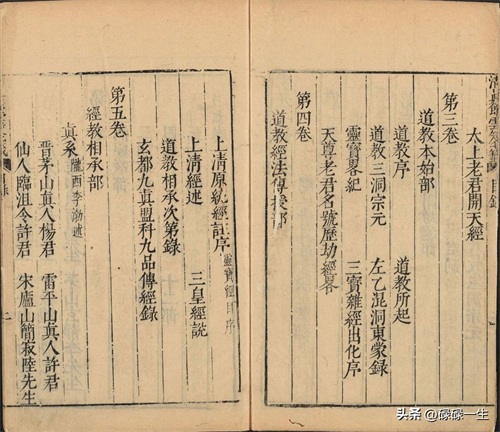 太上老君開天經
第三卷
道教本始部
道教序 道教所起
道教三洞宗元 左乙混洞東蒙錄
靈寶畧紀 三寶雜經出化序
天尊老君名號歷劫經畧
第四卷
道教經法傳授部
上清原統經註序 靈寶經目序
上清經述 三皇經説
道教相承次第錄
玄都九真盟科九品傳經錄
第五卷
經教相承部
真系 隴西李渤述
晉茅山真人楊君 雷平山真人許君
仙人臨沮令許君 宋廬山簡寂陸先生
头条 @碌碌一生